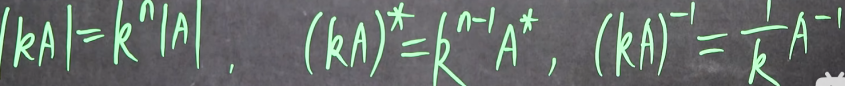 |kA|=kⁿ|A| , (kA)*=kⁿ⁻¹A* , (kA)⁻¹=1/k A⁻¹